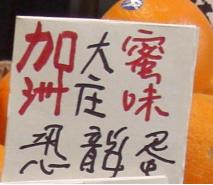 加洲
大庄
蜜味
恐龍蛋